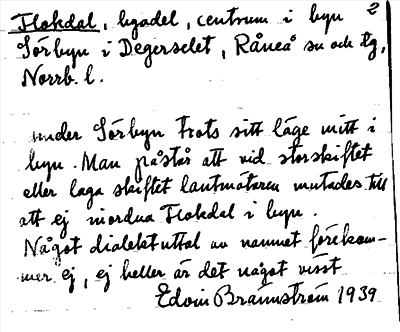 Flokdal, bydel, centrum i byn 2
Sörbyn i Degerselet, Råneå sn och tg,
Norrb. l.
under Sörbyn trots sitt läge mitt i
byn. Man påstår att vid storskiftet
eller laga skiftet lantmätaren mutades till
att ej inordna Flokdal i byn.
Något dialektuttal av namnet förekom-
mer ej, ej heller är det något visst
Edvin Brännström 1939